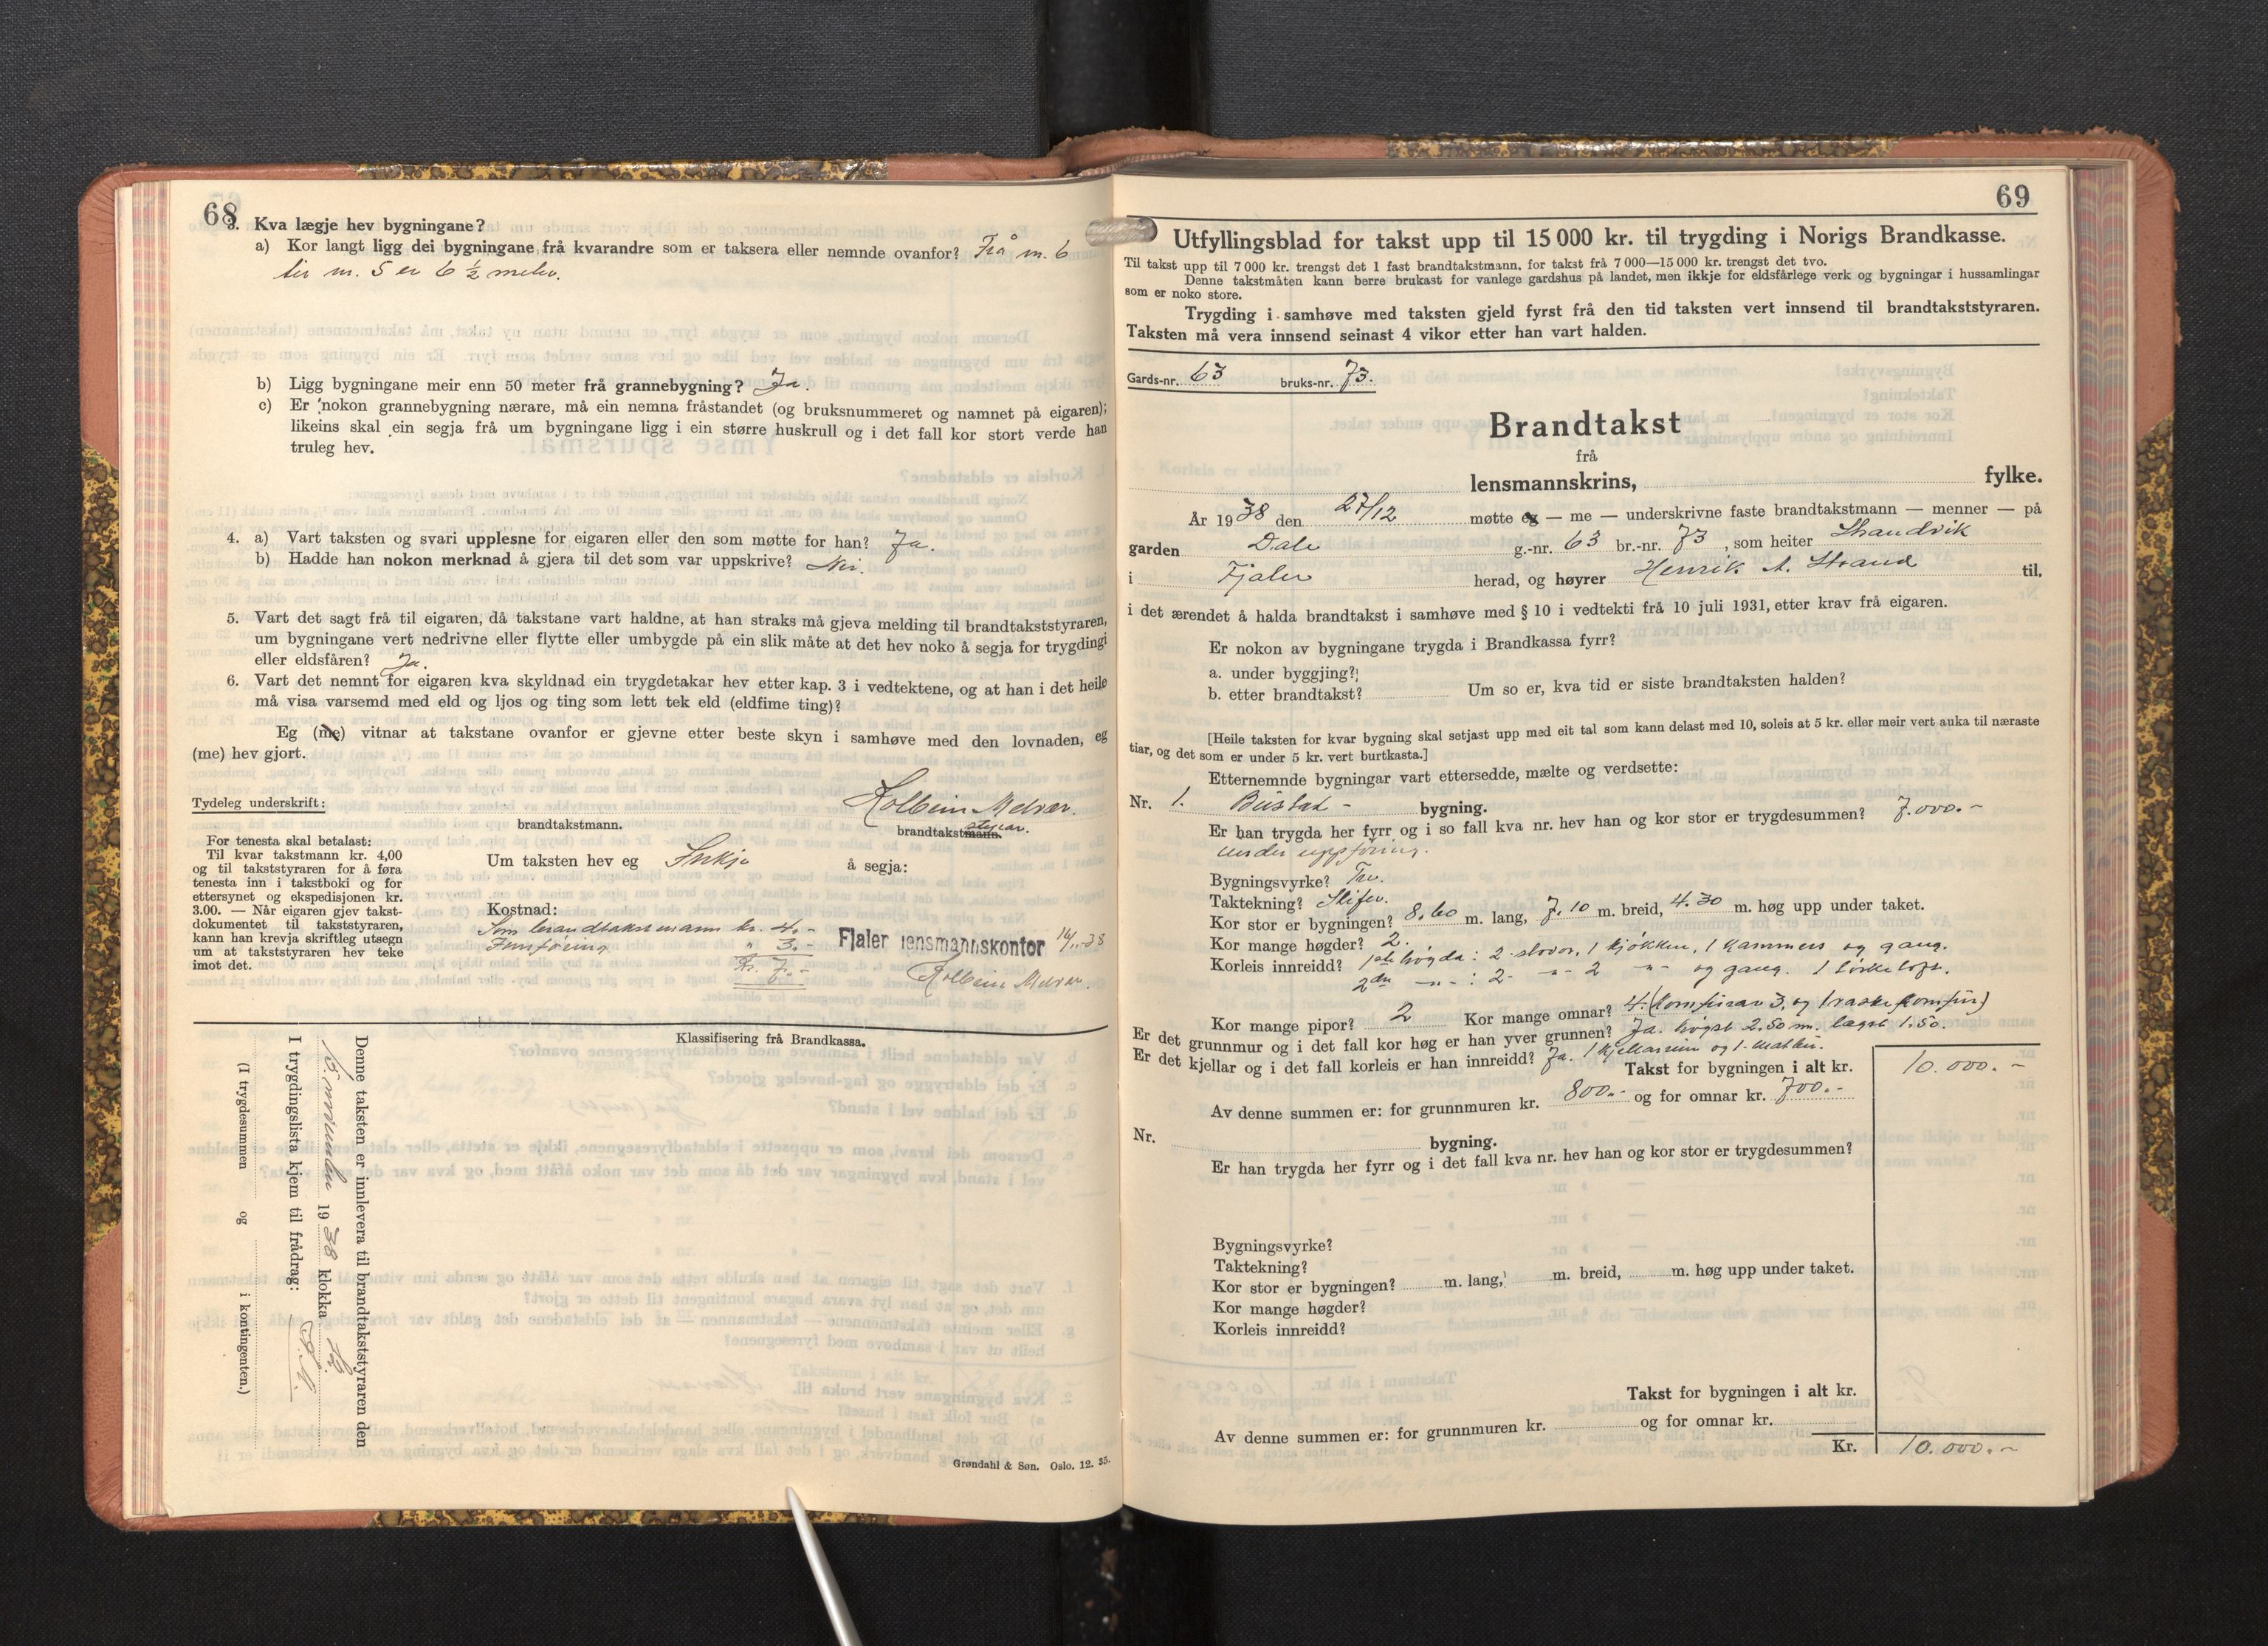 68
3. Kva lægje hev bygningane?
a) Kor langt ligg dei bygningane frå kvarandre som er taksera eller nemnde ovanfor? Frå m. 6
til m. 5 er 6 ½ meter.
b) Ligg bygningane meir enn 50 meter frå grannebygning? Ja.
c) Er nokon grannebygning nærare, må ein nemna fråstandet (og bruksnummeret og namnet på eigaren);
likeins skal ein segja frå um bygningane ligg i ein større huskrull og i det fall kor stort verde han
truleg hev.
4. a) Vart taksten og svari upplesne for eigaren eller den som møtte for han? Ja.
b) Hadde han nokon merknad å gjera til det som var uppskrive? Nei.
5. Vart det sagt frå til eigaren, då takstane vart haldne, at han straks må gjeva melding til brandtakststyraren,
um bygningane vert nedrivne eller flytte eller umbygde på ein slik måte at det hev noko å segja for trygdingi
eller eldsfåren? Ja.
6. Vart det nemnt for eigaren kva skyldnad ein trygdetakar hev etter kap. 3 i vedtektene, og at han i det heile
må visa varsemd med eld og ljos og ting som lett tek eld (eldfime ting)?
Eg (me) vitnar at takstane ovanfor er gjevne etter beste skyn i samhøve med den lovnaden, eg
(me) hev gjort.
Tydeleg underskrift:
Kolbein Melvær.
brandtakstmann.
brandtakstmann. styrar.
For tenesta skal betalast:
Til kvar takstmann kr. 4,00
og til takststyraren for å føra
tenesta inn i takstboki og for
ettersynet og ekspedisjonen kr.
3.00. — Når eigaren gjev takst-
dokumentet til takststyraren,
kann han krevja skriftleg utsegn
um at takststyraren hev teke
imot det.
Um taksten hev eg Inkje å segja:
Kostnad:
Som brandtakstmann kr. 4.-
Innføring " 3.-
Kr. 7.-
Fjaler lensmannskontor 14/11-38
Kolbein Melvær.
Klassifisering frå Brandkassa.
Denne taksten er innlevera til brandtakststyraren den
15 november 1938 klokka 12.
I trygdingslista kjem til frådrag: K.M.
(I trygdesummen og i kontingenten.)
Grøndahl & Søn. Oslo. 12. 35.
69
Utfyllingsblad for takst upp til 15 000 kr. til trygding i Norigs Brandkasse.
Til takst upp til 7 000 kr. trengst det 1 fast brandtakstmann, for takst frå 7 000—15 000 kr. trengst det tvo.
Denne takstmåten kann berre brukast for vanlege gardshus på landet, men ikkje for eldsfårlege verk og bygningar i hussamlingar
som er noko store.
Trygding i samhøve med taksten gjeld fyrst frå den tid taksten vert innsend til brandtakststyraren.
Taksten må vera innsend seinast 4 vikor etter han vart halden.
Gards-nr. 63 bruks-nr. 73.
Brandtakst
frå
lensmannskrins, fylke.
År 1938 den 27/12 møtte eg — me — underskrivne faste brandtakstmann — menner — på
garden Dale g.-nr. 63 br.-nr. 73, som heiter Strandvik
i Fjaler herad, og høyrer Henrik A. Strand til,
i det ærendet å halda brandtakst i samhøve med § 10 i vedtekti frå 10 juli 1931, etter krav frå eigaren.
Er nokon av bygningane trygda i Brandkassa fyrr?
a. under byggjing?
b. etter brandtakst? Um so er, kva tid er siste brandtaksten halden?
[Heile taksten for kvar bygning skal setjast upp med eit tal som kann delast med 10, soleis at 5 kr. eller meir vert auka til næraste
tiar, og det som er under 5 kr. vert burtkasta.]
Etternemnde bygningar vart ettersedde, mælte og verdsette:
Nr. 1. Bustad - bygning.
Er han trygda her fyrr og i so fall kva nr. hev han og kor stor er trygdesummen? 7.000.-
under uppføring.
Bygningsvyrke? Tre.
Taktekning? Skifer.
Kor stor er bygningen? 8.60 m. lang, 7.10 m. breid, 4.30 m. høg upp under taket.
Kor mange høgder? 2.
Korleis innreidd? 1ste høgda: 2 stover, 1 kjøkken, 1 kammers og gang.
2dre -"- : 2 -"- 2 -"- og gang. 1 tørkeloft.
Kor mange pipor? 2 Kor mange omnar? 4. (komfirar 3, og 1 vaskekomfir)
Er det grunnmur og i det fall kor høg er han yver grunnen? Ja. høgst 2.50 m. lægst 1.50.
Er det kjellar og i det fall korleis er han innreidd? Ja. 1 kjellarrum og 1. matbu.
Takst for bygningen i alt kr. 10.000.-
Av denne summen er: for grunnmuren kr. 800.- og for omnar kr. 700.-
Nr. bygning.
Er han trygda her fyrr og i det fall kva nr. hev han og kor stor er trygdesummen?
Bygningsvyrke?
Taktekning?
Kor stor er bygningen? m. lang, m. breid, m. høg upp under taket.
Kor mange høgder?
Korleis innreidd?
Takst for bygningen i alt kr.
Av denne summen er: for grunnmuren kr. og for omnar kr.
Kr. 10.000.-